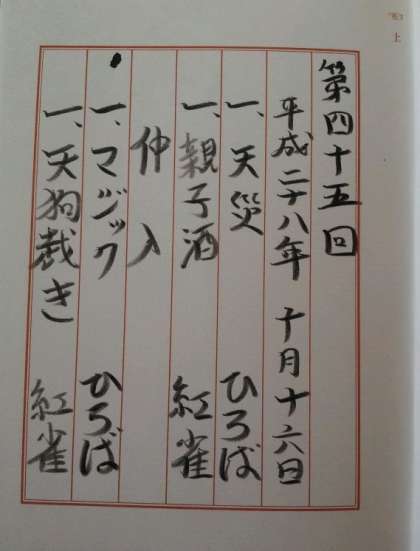 第四十五回
平成二十八年 十月十六日
一、天災 ひろば
一、親子酒 紅雀
仲入
一、マジック ひろば
一、天狗裁き 紅雀
上